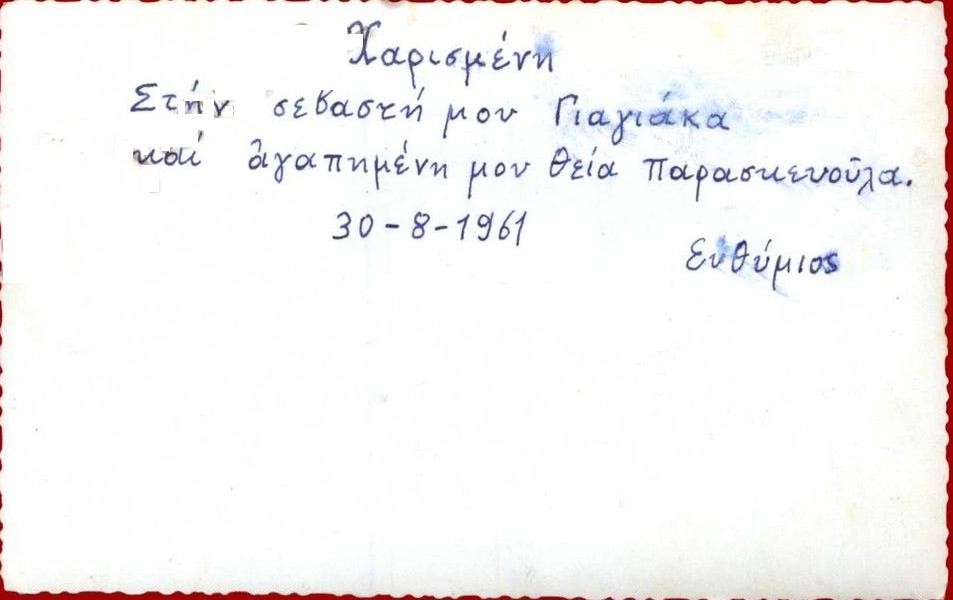 Χαρισμένη
Στήν σεβαστή μου Γιαγιάκα
καί ἀγαπημένη μου θεία Παρασκευοῦλα.
30-8-1961
Ευθύμιος